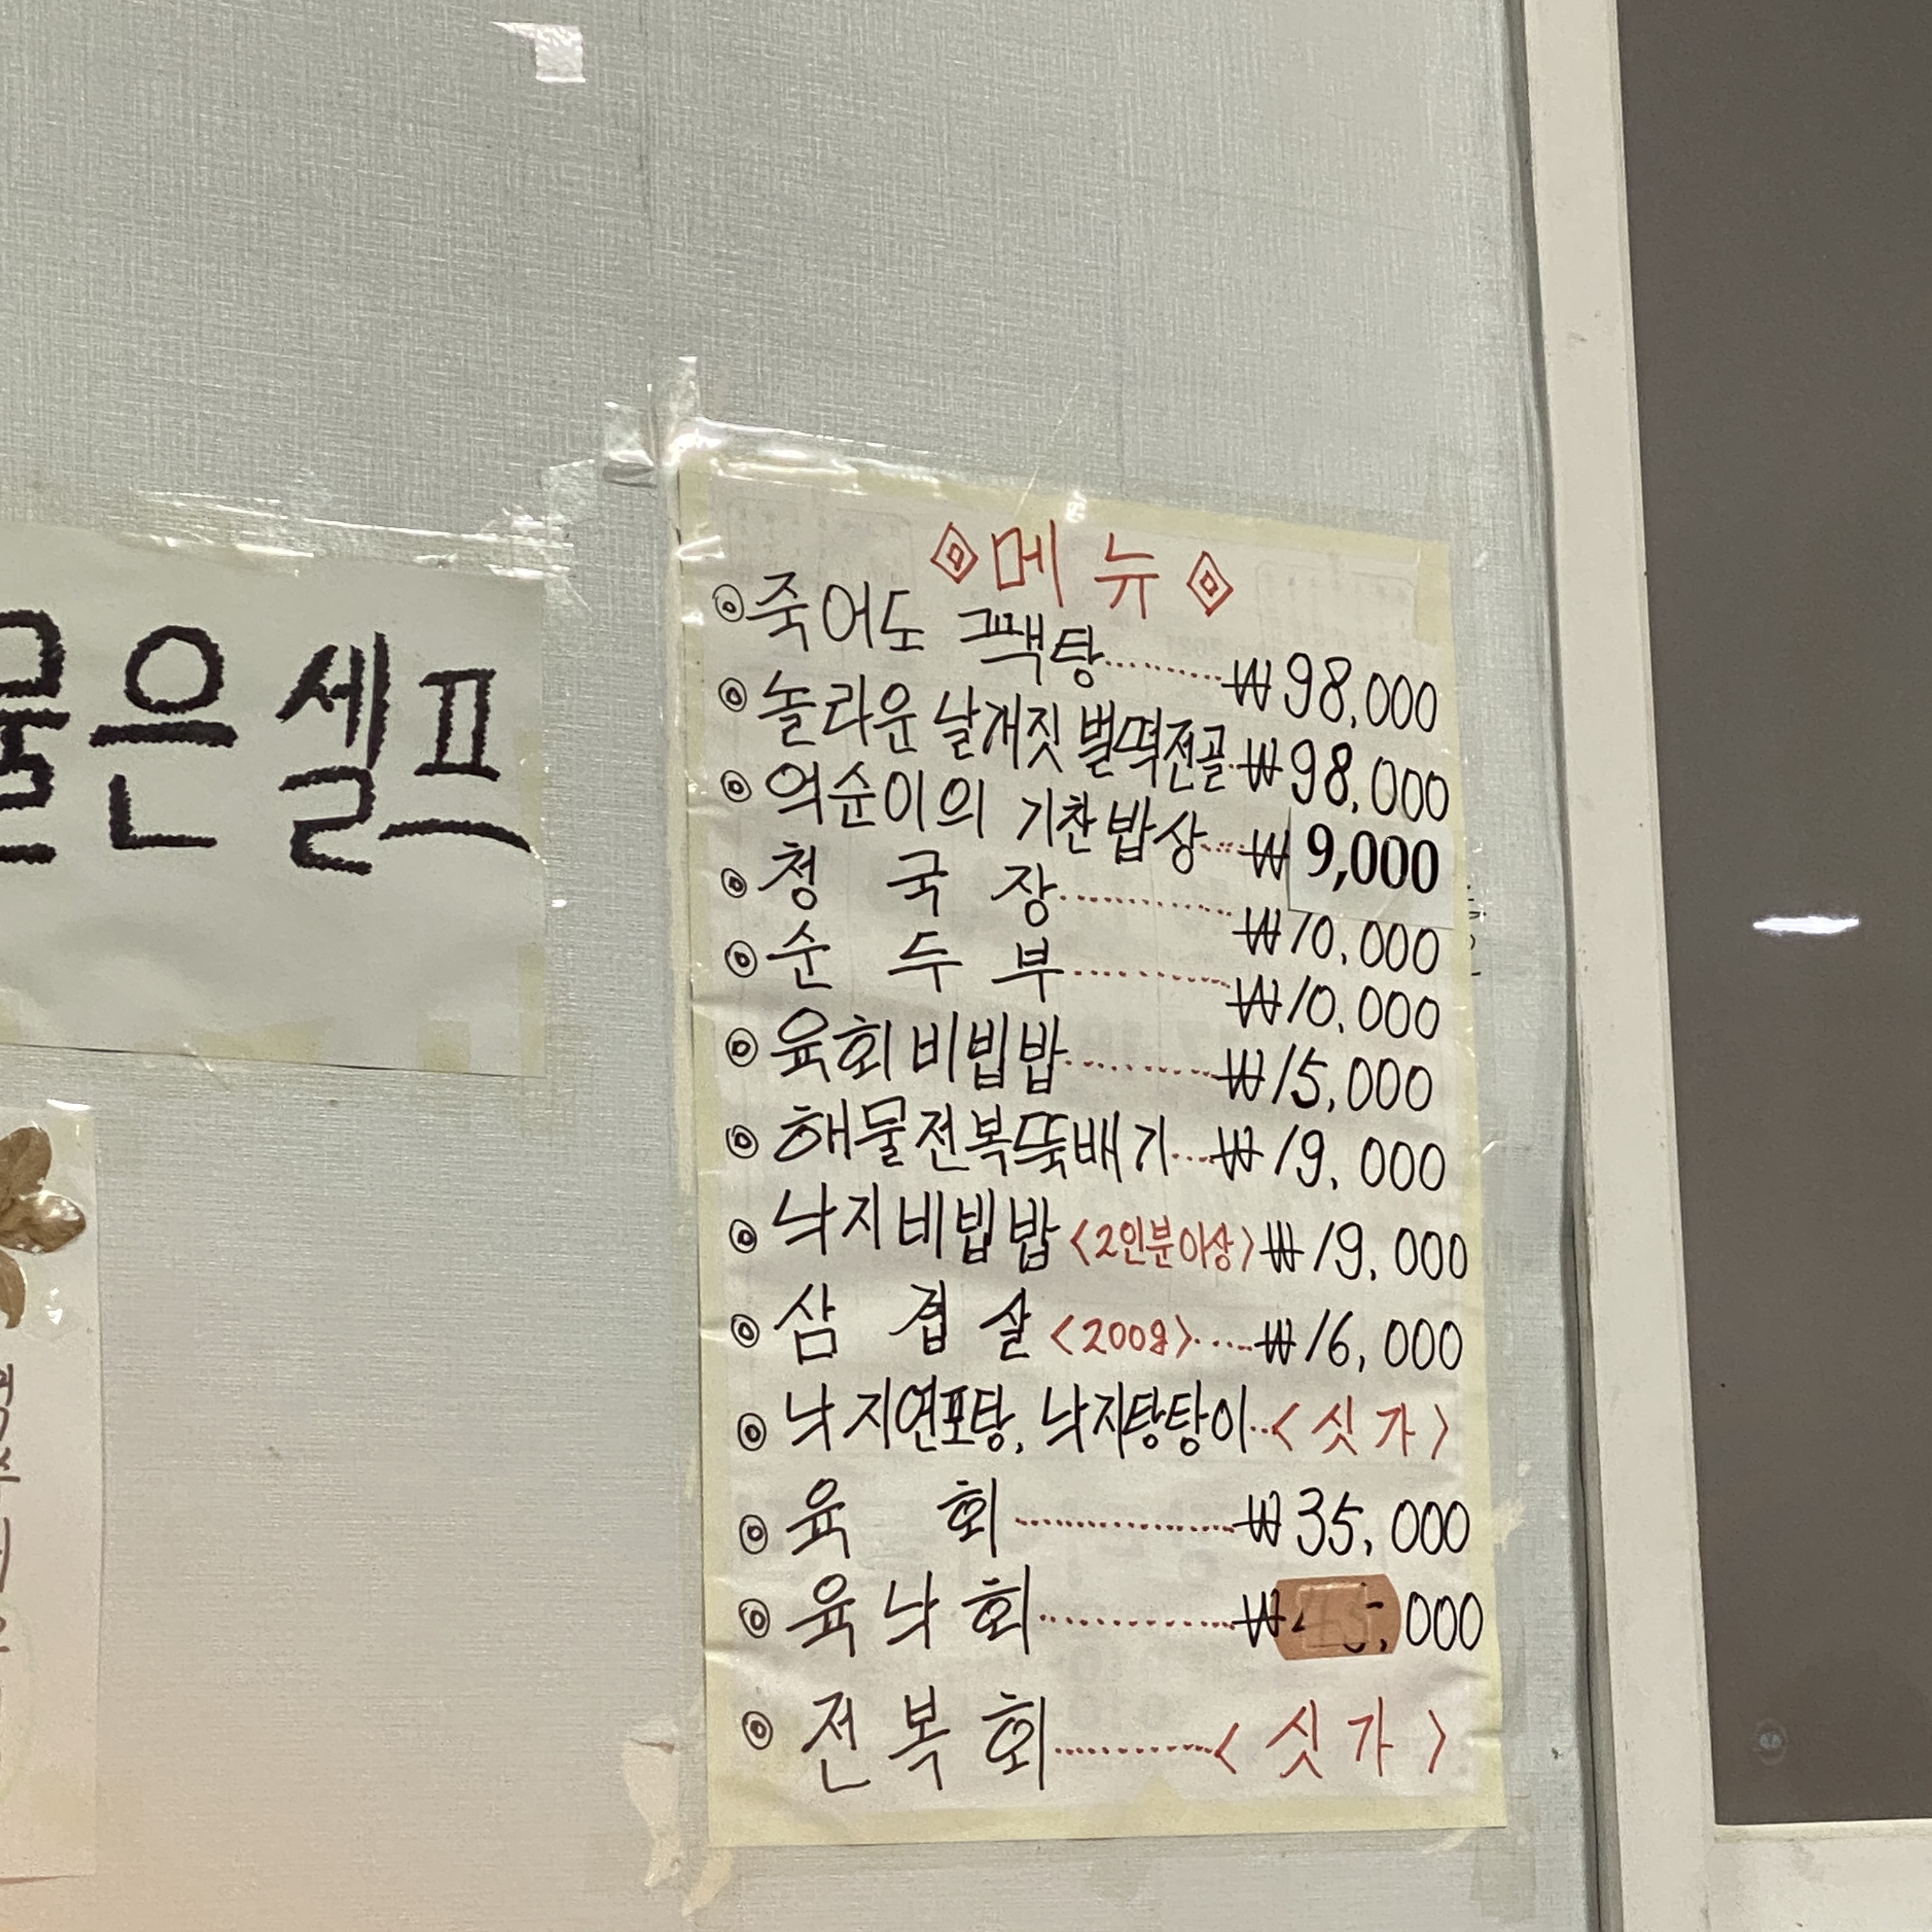 물은셀프
메뉴
죽어도 팩탕 ₩98,000
놀라운 날개짓 벌떡전골 ₩98,000
억순이의 기찬밥상 ₩9,000
청국장 ₩10,000
순두부 ₩10,000
육회비빔밥 ₩15,000
해물전복뚝배기 ₩19,000
낙지비빔밥 <2인분이상> ₩19,000
삼겹살 <200g> ₩16,000
낙지연포탕, 낙지탕탕이 <싯가>
육회 ₩35,000
육낙회 ₩45,000
전복회 <싯가>